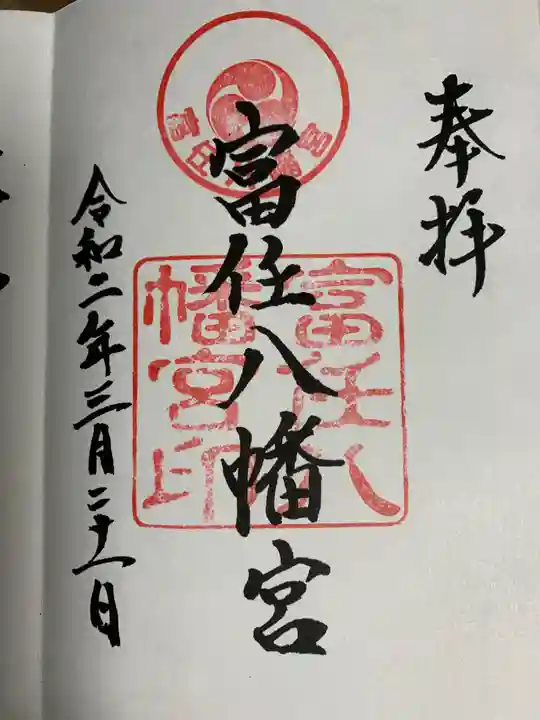 奉拝
富任八幡宮
富任八
幡宮印
富任八幡宮
令和二年三月二十一日